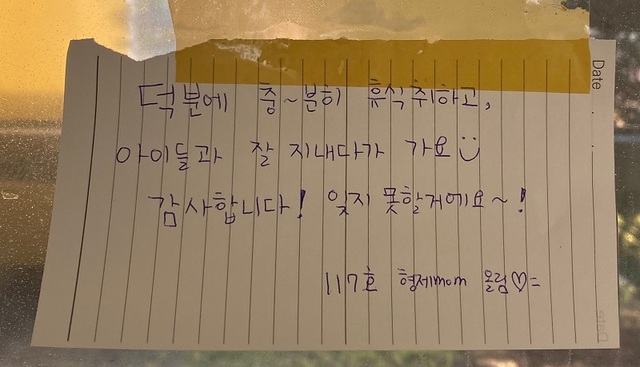 Date
덕분에 충~분히 휴식취하고,
아이들과 잘 지내다가 가요
감사합니다! 잊지 못할거에요~!
117호 형제mom 올림♡=